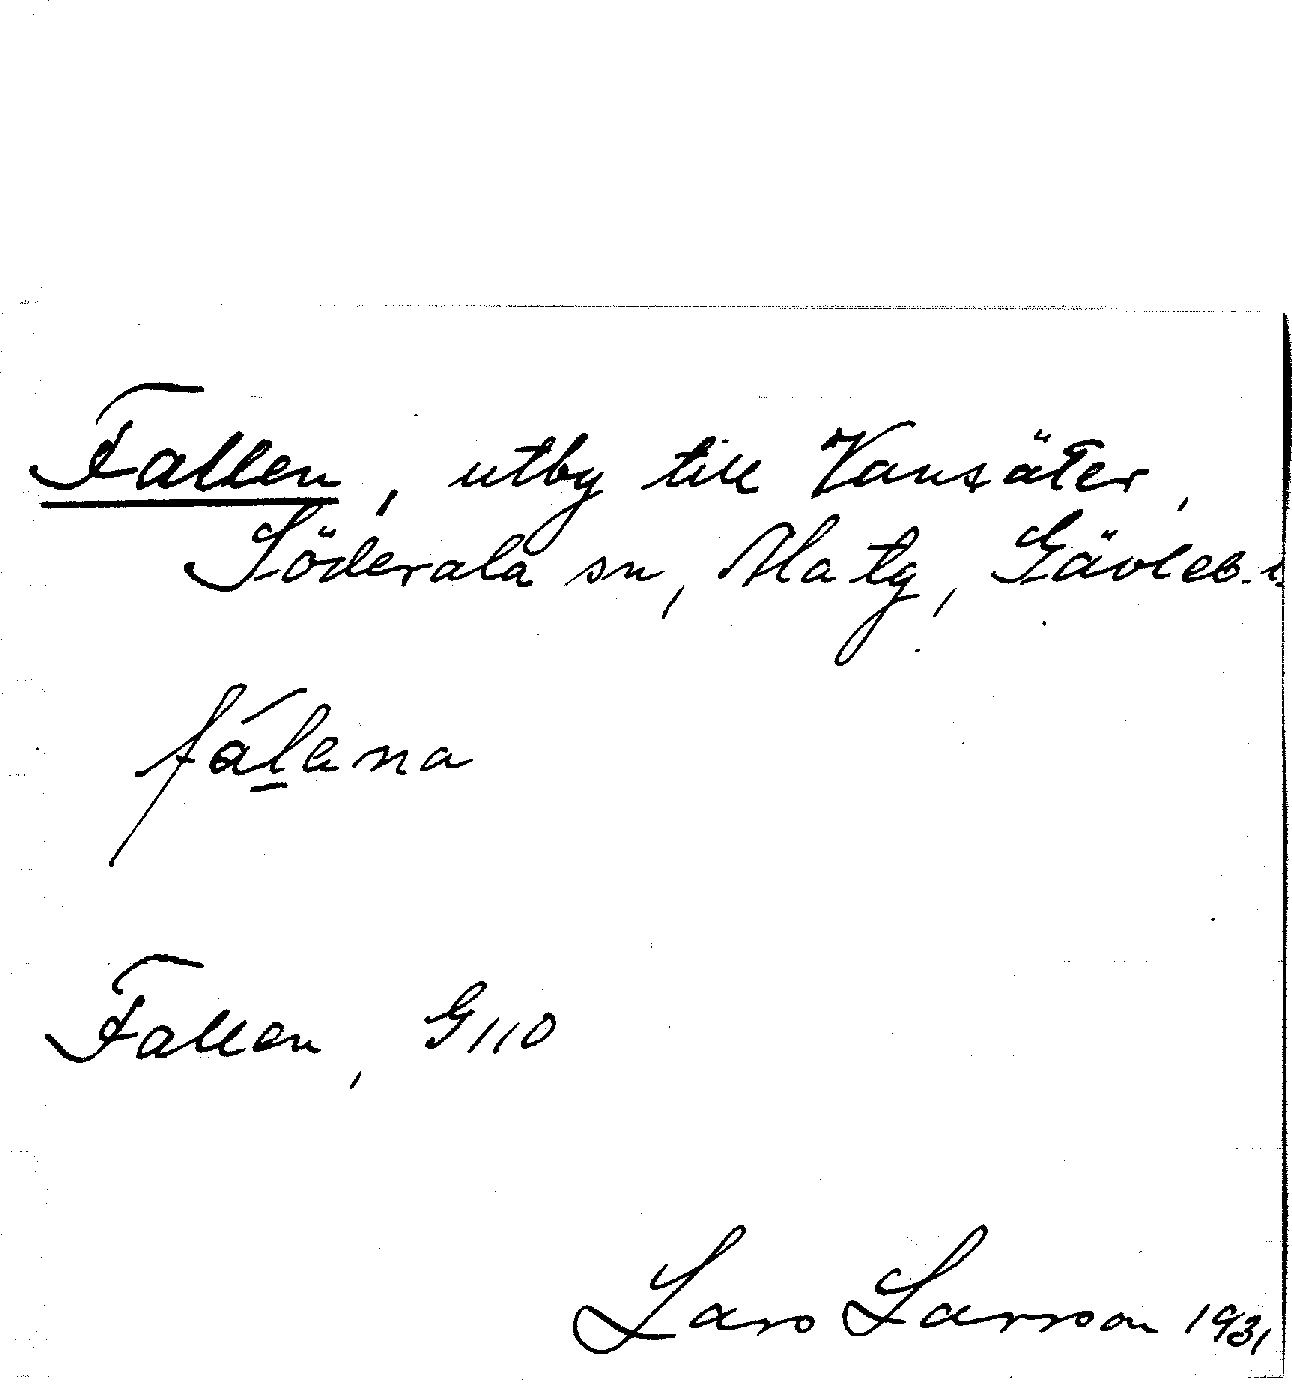 Fallen, utby till Vansäter,
Söderala sn, Ala tg, Gävleb. l
fálana
Fallen, G110
Lars Larsson 1931